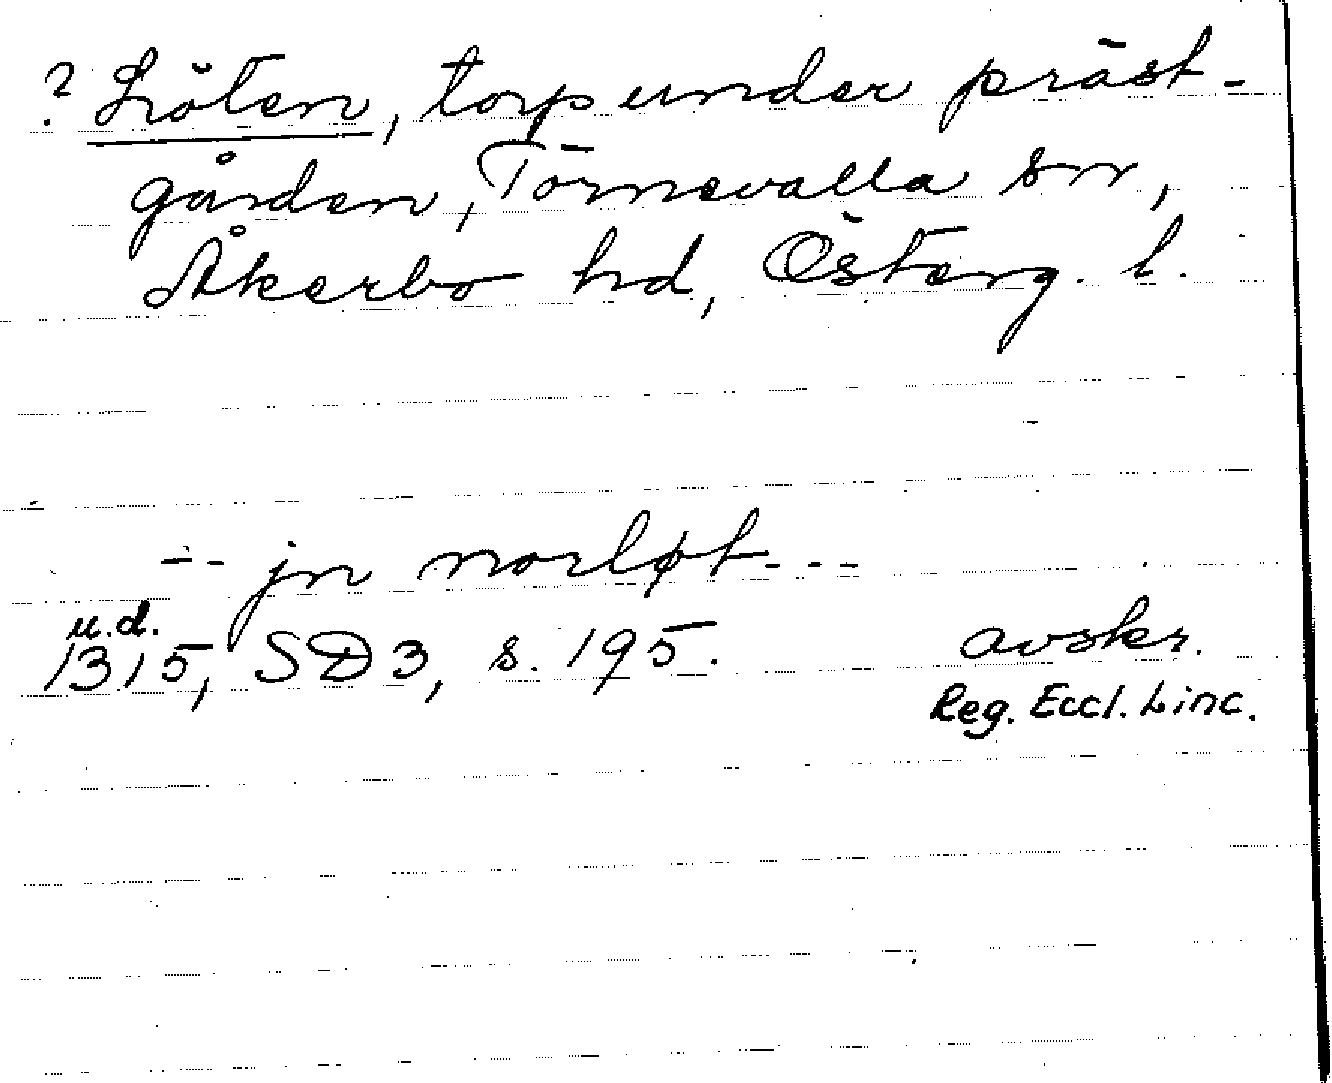 ? Löten, torp under präst-
gården, Törnevalla sn,
Åkerbo hd, Österg. l.
- - jn norløt - - -
u.d.
1315, SD 3, s. 195. avskr.
Reg. Eccl. Linc.